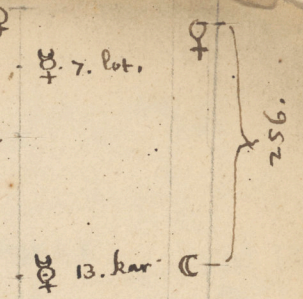 ♀
☿. 7. lot.
☿ 13. kar ☾
256.